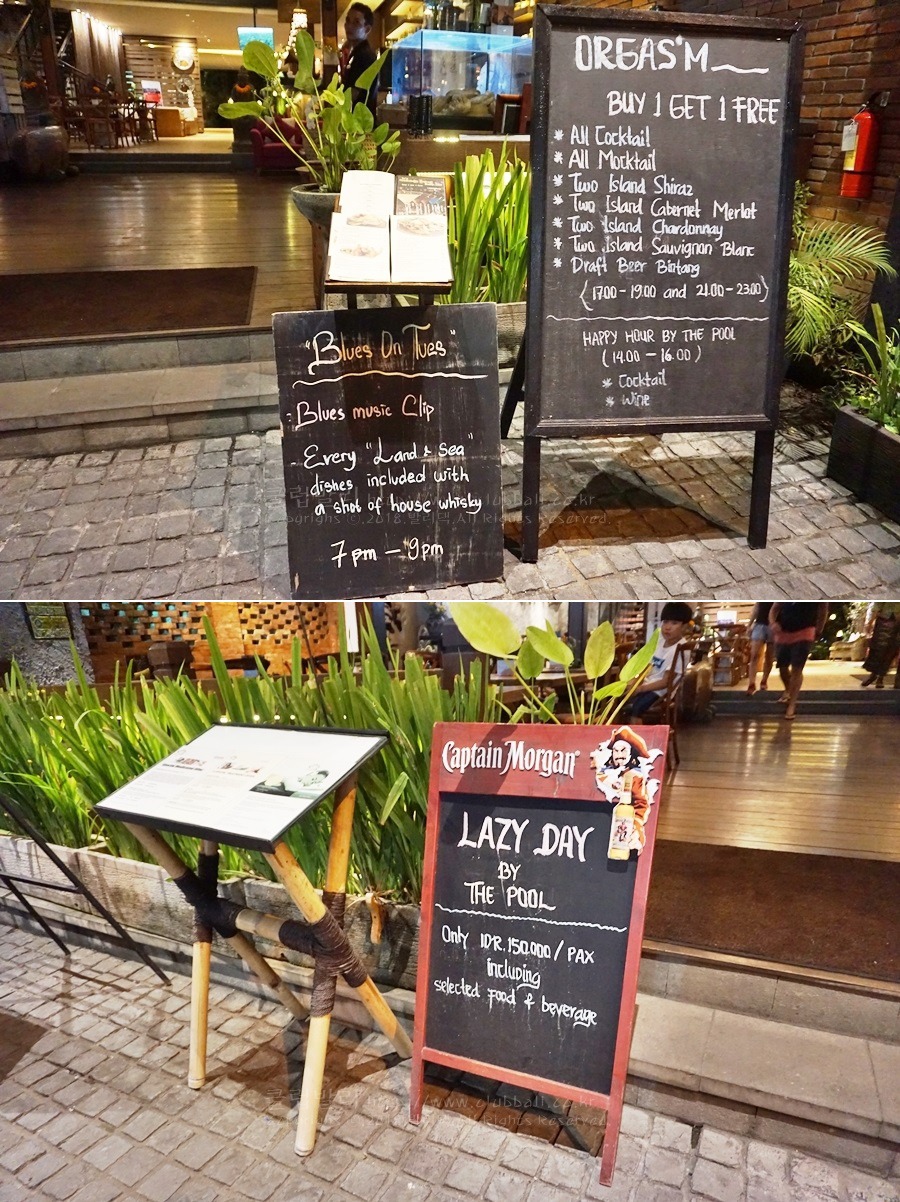 OREGAS'M
BUY 1 GET 1 FREE
* All Cocktail
* All Mocktail
* Two Island Shiraz
* Two Island Cabernet Merlot
* Two Island Chardonnay
* Two Island Sauvignon Blanc
* Draft Beer Bintang
(17.00 - 19.00 and 21.00 - 23.00)
HAPPY HOUR BY THE POOL
(14.00 - 16.00)
* Cocktail
* Wine
"Blues On Tues"
- Blues music Clip
- Every "Land & Sea"
dishes included with
a shot of house whisky
7pm - 9pm
Captain Morgan
LAZY DAY
BY
THE POOL
Only IDR. 150.000 / PAX
including
selected food & beverage